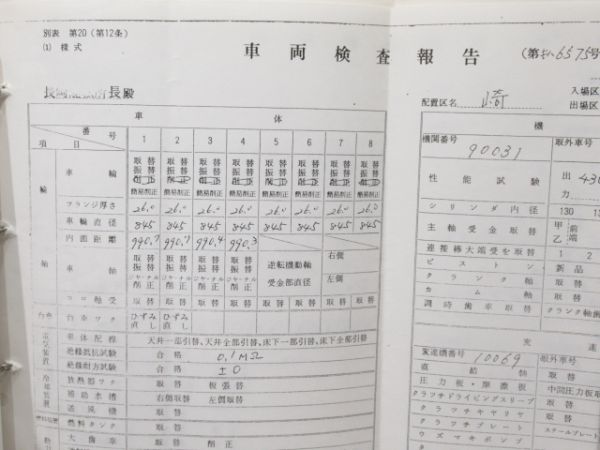 別表 第20(第12条)
(1) 様式
車両検査報告
6575号
長殿
配置区名 崎
入場区
出場区
車体
番号
項目
1 2 3 4 5 6 7 8
車輪
取替 取替 取替 取替 取替 取替 取替 取替
振替 振替 振替 振替 振替 振替 振替 振替
簡易削正 簡易削正 簡易削正 簡易削正 簡易削正 簡易削正 簡易削正 簡易削正
フランジ厚さ 26.0 26.0 26.0 26.0 26.0 26.0 26.0 26.0
車輪直径 845 845 845 845 845 845 845 845
内面距離 990.7 990.7 990.4 990.3
輪軸
車軸
取替 取替 取替 取替
振替 振替 振替 振替
ジャーナル ジャーナル ジャーナル ジャーナル
削正 削正 削正 削正
逆転機動軸
受金部直径
右側
左側
コロ軸受 取替 取替 取替 取替 取替 取替 取替 取替
台車 台車ワク ひずみ直し ひずみ直し
電気装置
車体配線 天井一部引替、天井全部引替、床下一部引替、床下全部引替
絶縁抵抗試験 合格 0.1MΩ
絶縁耐力試験 合格
冷却装置
放熱器ワク 取替 板張替
補助水槽 右側取替 左側取替
送風機 取替
燃料タンク 取替
大歯車 取替 削正
機
機関番号 90031
取外車号
性能試験
出力 430
シリンダ内径 130 13
主軸受金取替
甲 乙
前 端
連接棒大端受を取替 1 2
ピストン 新品
クランク軸 取替
カム軸 取替
調時歯車取替 クランク軸歯
変速機番号 10069
取外車号
直結軸 取替
圧力板・摩擦板 中間圧力板取
クラツチドライビングスリーブ 取替
クラツチキヤリヤ 取替
クラツチプレート スチールプレート
ウズマキポンプ 取替